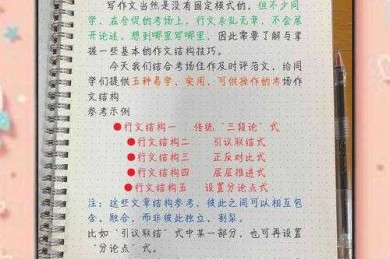 写作文当然是没有固定模式的，但不少同
学，在仓促的考场上，行文杂乱无章，不会展
开论述，想到哪里写哪里，因此需要了解与掌
握一些基本的作文结构技巧。
今天我们结合考场佳作及时评范文，给同
学们提供五种易学、实用、可供操作的考场作
文结构
参考示例
●行文结构一 传统“三段论”式
●行文结构二 引议联结式
●行文结构三 正反对比式
●行文结构四 层层推进式
●行文结构五 设置分论点式
注：这些文章结构参考，彼此之间可以相互包
含、融合，而非彼此独立、割裂。
比如“引议联结”式中某一部分，也可再设置
“分论点”式。